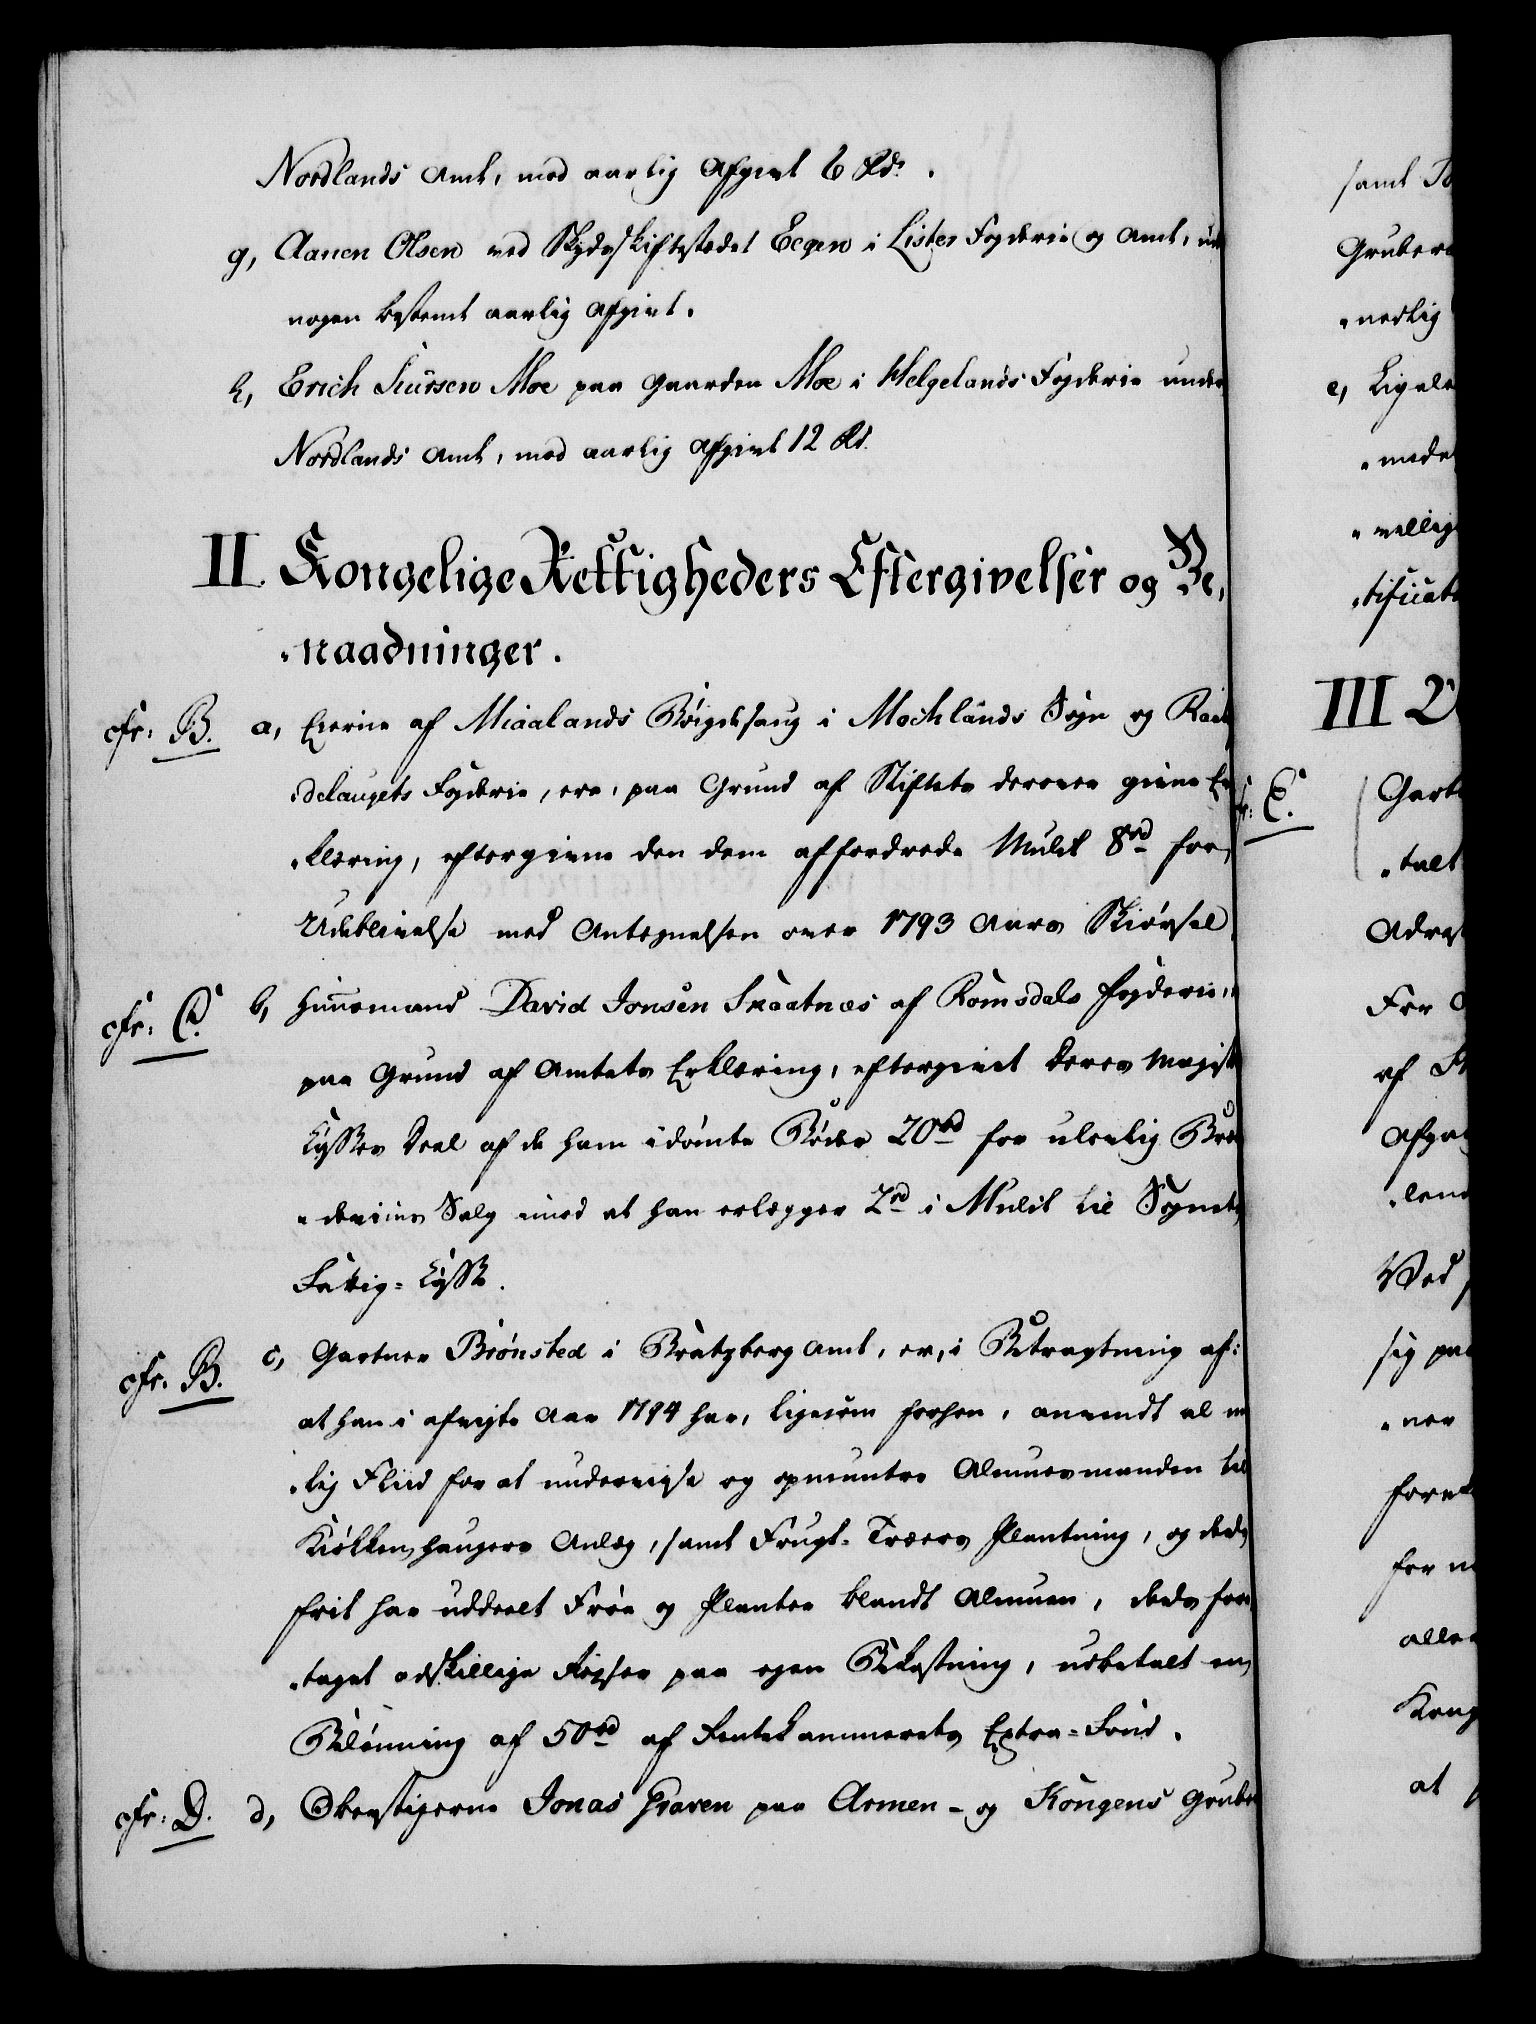 Nordlands Amt, mod aarlig Afgivt 6 Rd.
g, Aanen Olsen ved Skydsskiftestedet Eegen i Lister Fogderie og Amt, uden
nogen bestemt aarlig Afgivt.
h, Erich Siursen Moe paa Gaarden Moe i Helgelands Fogderie under
Nordlands Amt, mod aarlig Afgivt 12 Rd.
II. Kongelige Rettigheders Eftergivelser og Be-
-naadninger.
cfr: B. a, Eierne af Miaalands Bøigdesaug i Mochlands Sogn og Raab
-delaugets Fogderie, ere, paa Grund af Stiftets derover givne Er
-klæring, eftergivne den dem affordrede Mulct 8rd for
Udeblivelse med Antegnelsen over 1793 Aars Skiørsel.
cfr: C. b, Huusmand David Jonsen Skaatnæs af Romsdals Fogderie,
paa Grund af Amtets Erklæring, eftergivet Deres Majest
Kasses Deel af de ham idømte Bøder 20rd for ulovlig Bræn
-deviins Salg imod at han erlægger 2rd i Mulct til Sognets
Fattig-Kasse.
cfr. B. c, Gartner Brønsted i Bratzberg Amt, er, i Betragtning af:
at han i afvigte Aar 1794 har, ligesom forhen, anvendt al mu
-lig Fliid for at underviise og opmuntre Almuesmanden til
Kiøkkenhaugers Anlæg, samt Frugt-Træers Plantning, og deels
frit har uddeelt Frøe og Planter blandt Almuen, deels fore
-taget adskillige Reyser paa egen Bekostning, udbetalt en
Belønning af 50rd af Rentekammerets Extra-Fond.
cfr: D. d, Oberstigerne Jonas Graven paa Armen- og Kongens Grube
samt
Grubern
-nedlig
e, Ligele
-villig
-tificat
III
cfr: E.
-talt
For
af
Ved
sig paa
-ner
for
alle
Kong
at